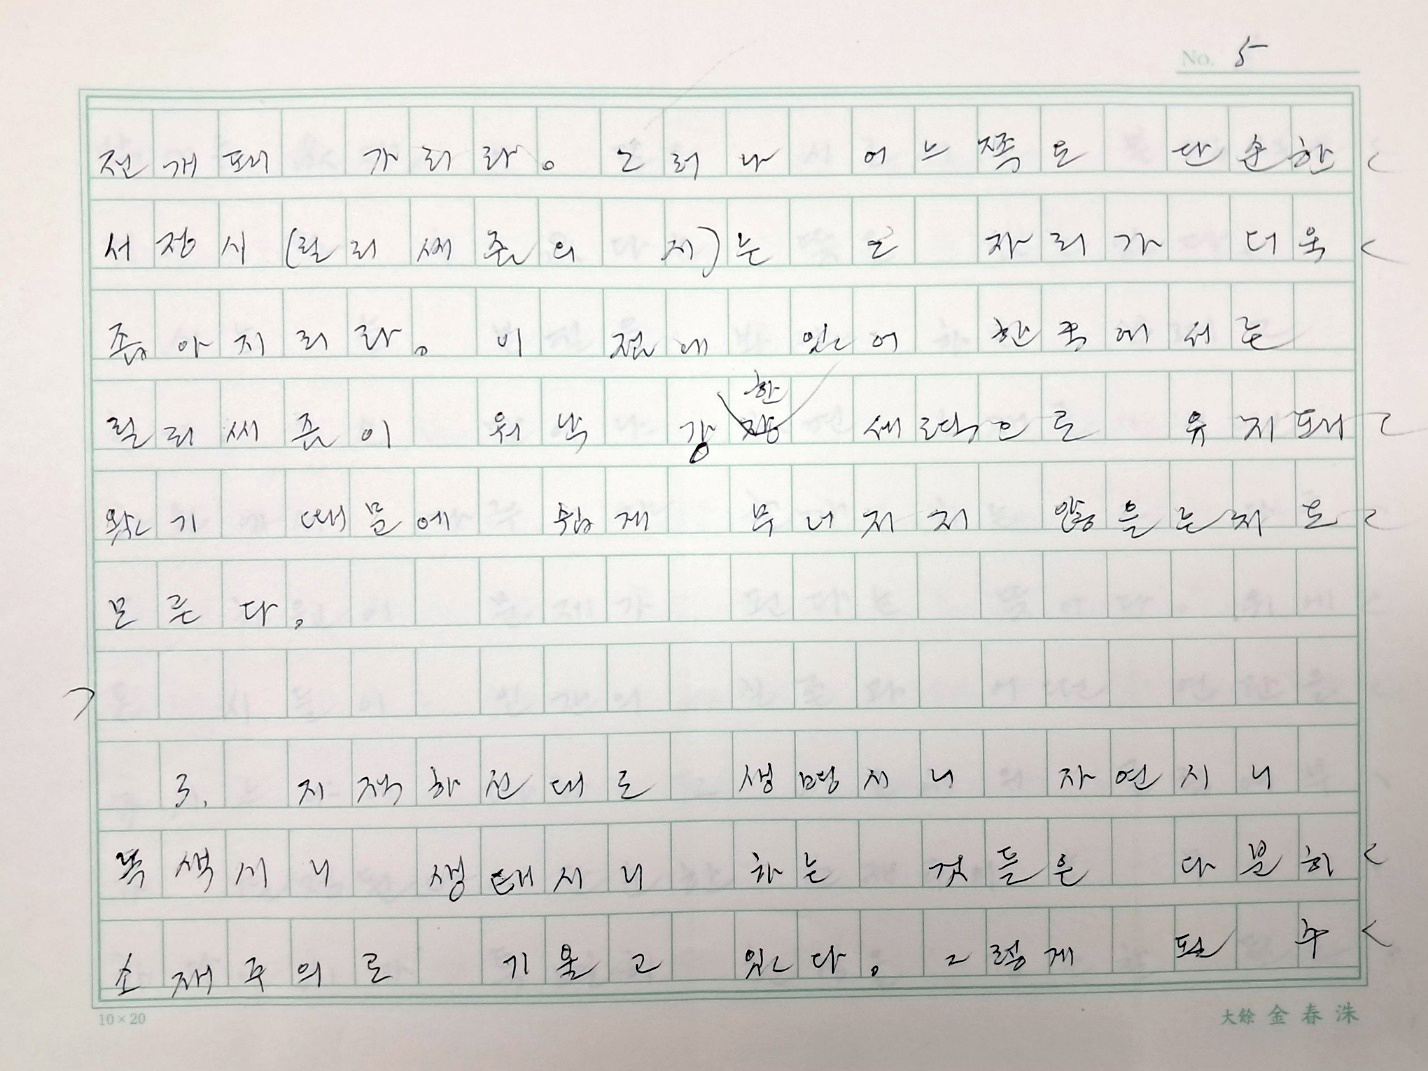 No. 5
전개돼 가리라。 그러나 어느쪽도 단순한
서정시(릴리씨즘의 시)는 설 자리가 더욱
좁아지리라。 이 점에 있어 한국에서는
릴리씨즘이 워낙 강한 세력으로 유지돼
왔기 때문에 쉽게 무너지지 않을는지도
모른다。
3. 지적한 전대로 생명시니 자연시니
녹색시니 생태시니 하는 것들은 다분히
소재주의로 기울고 있다。 그렇게 된 수
10×20
大餘 金春洙